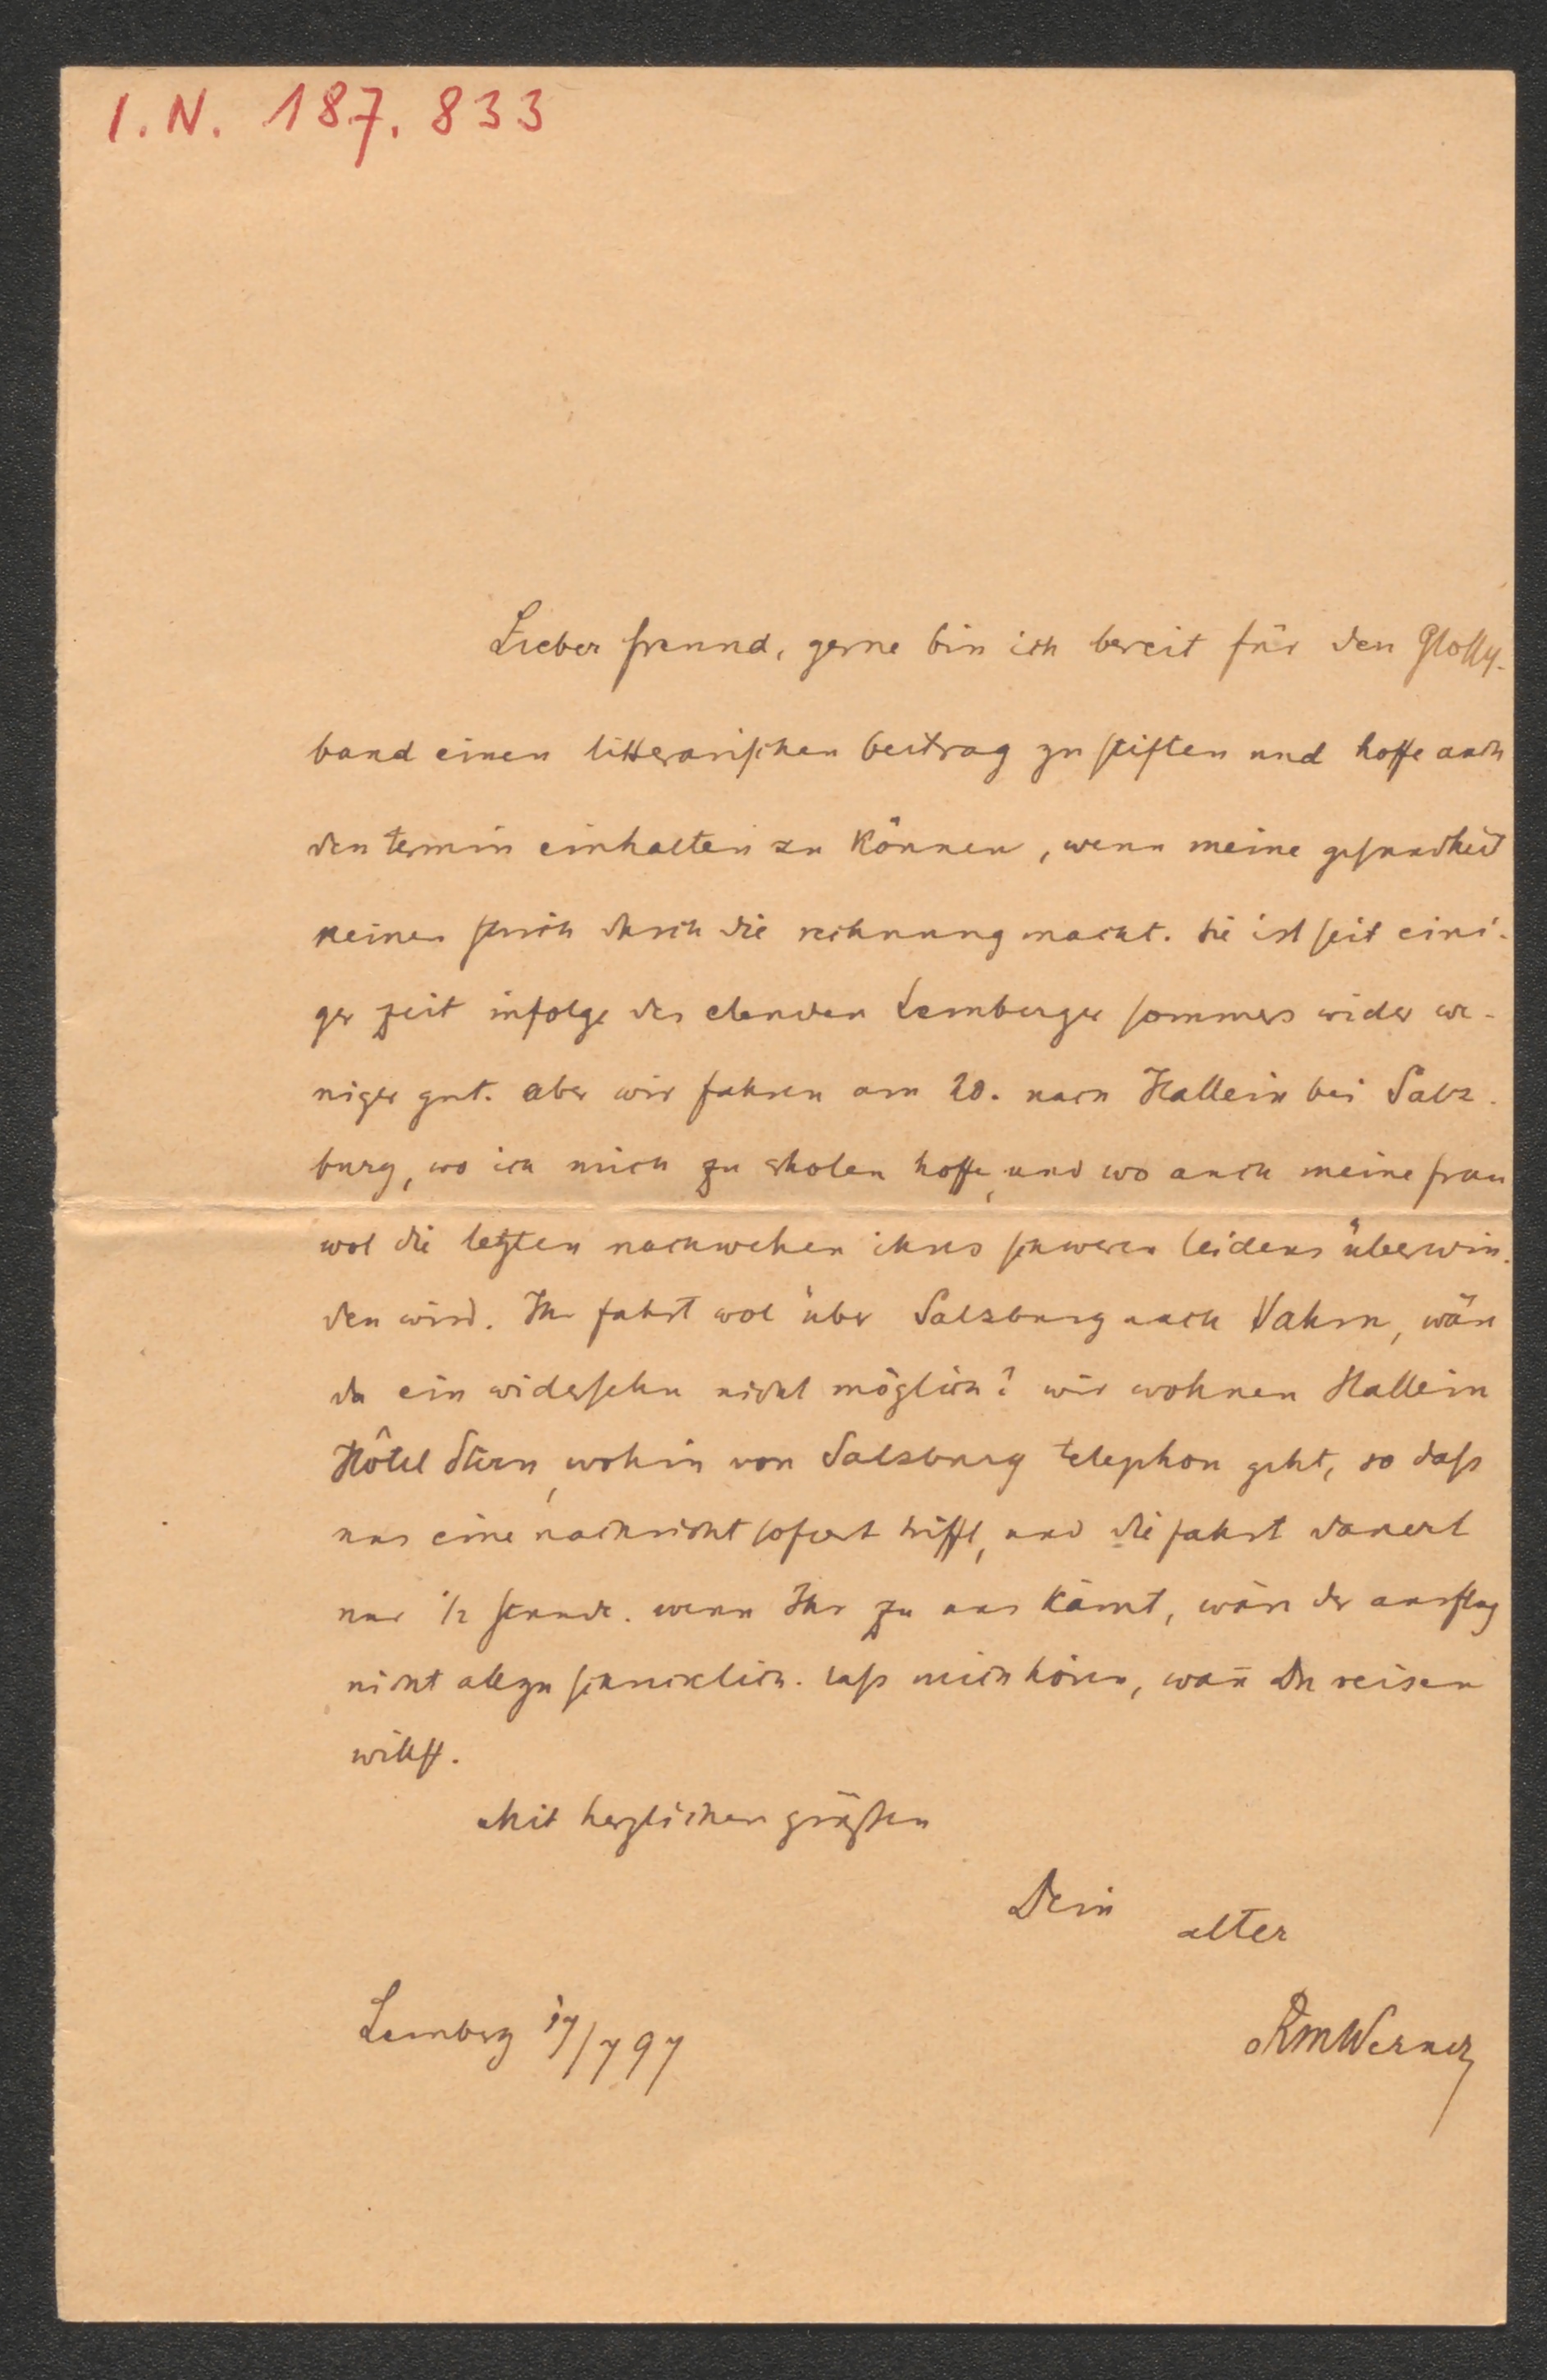 I. N. 187. 833
Lieber freund, gerne bin ich bereit für den Glossy-
band einen litterarischen beitrag zu stiften und hoffe auch
den termin einhalten zu können, wenn meine gesundheit
keinen strich durch die rechnung macht. sie ist seit eini-
ger zeit infolge des elenden Lemberger sommers wider we-
niger gut. aber wir fahren am 20. nach Hallein bei Salz-
burg, wo ich mich zu erholen hoffe, und wo auch meine frau
wol die letzten nachwehen ihres schweren leidens überwin-
den wird. Ihr fahrt wol über Salzburg nach Vahrn, wäre
da ein widersehn nicht möglich? wir wohnen Hallein
Hôtel Stern, wohin von Salzburg telephon geht, so dass
uns eine nachricht sofort trifft, und die fahrt dauert
nur 1/2 stunde. wenn Ihr zu uns kämt, wäre der ausflug
nicht allzu schrecklich. lass mich hören, wan̄ Du reisen
willst.
Mit herzlichen grüßen
Dein
alter
Lemberg 17/7 97
RMWerner